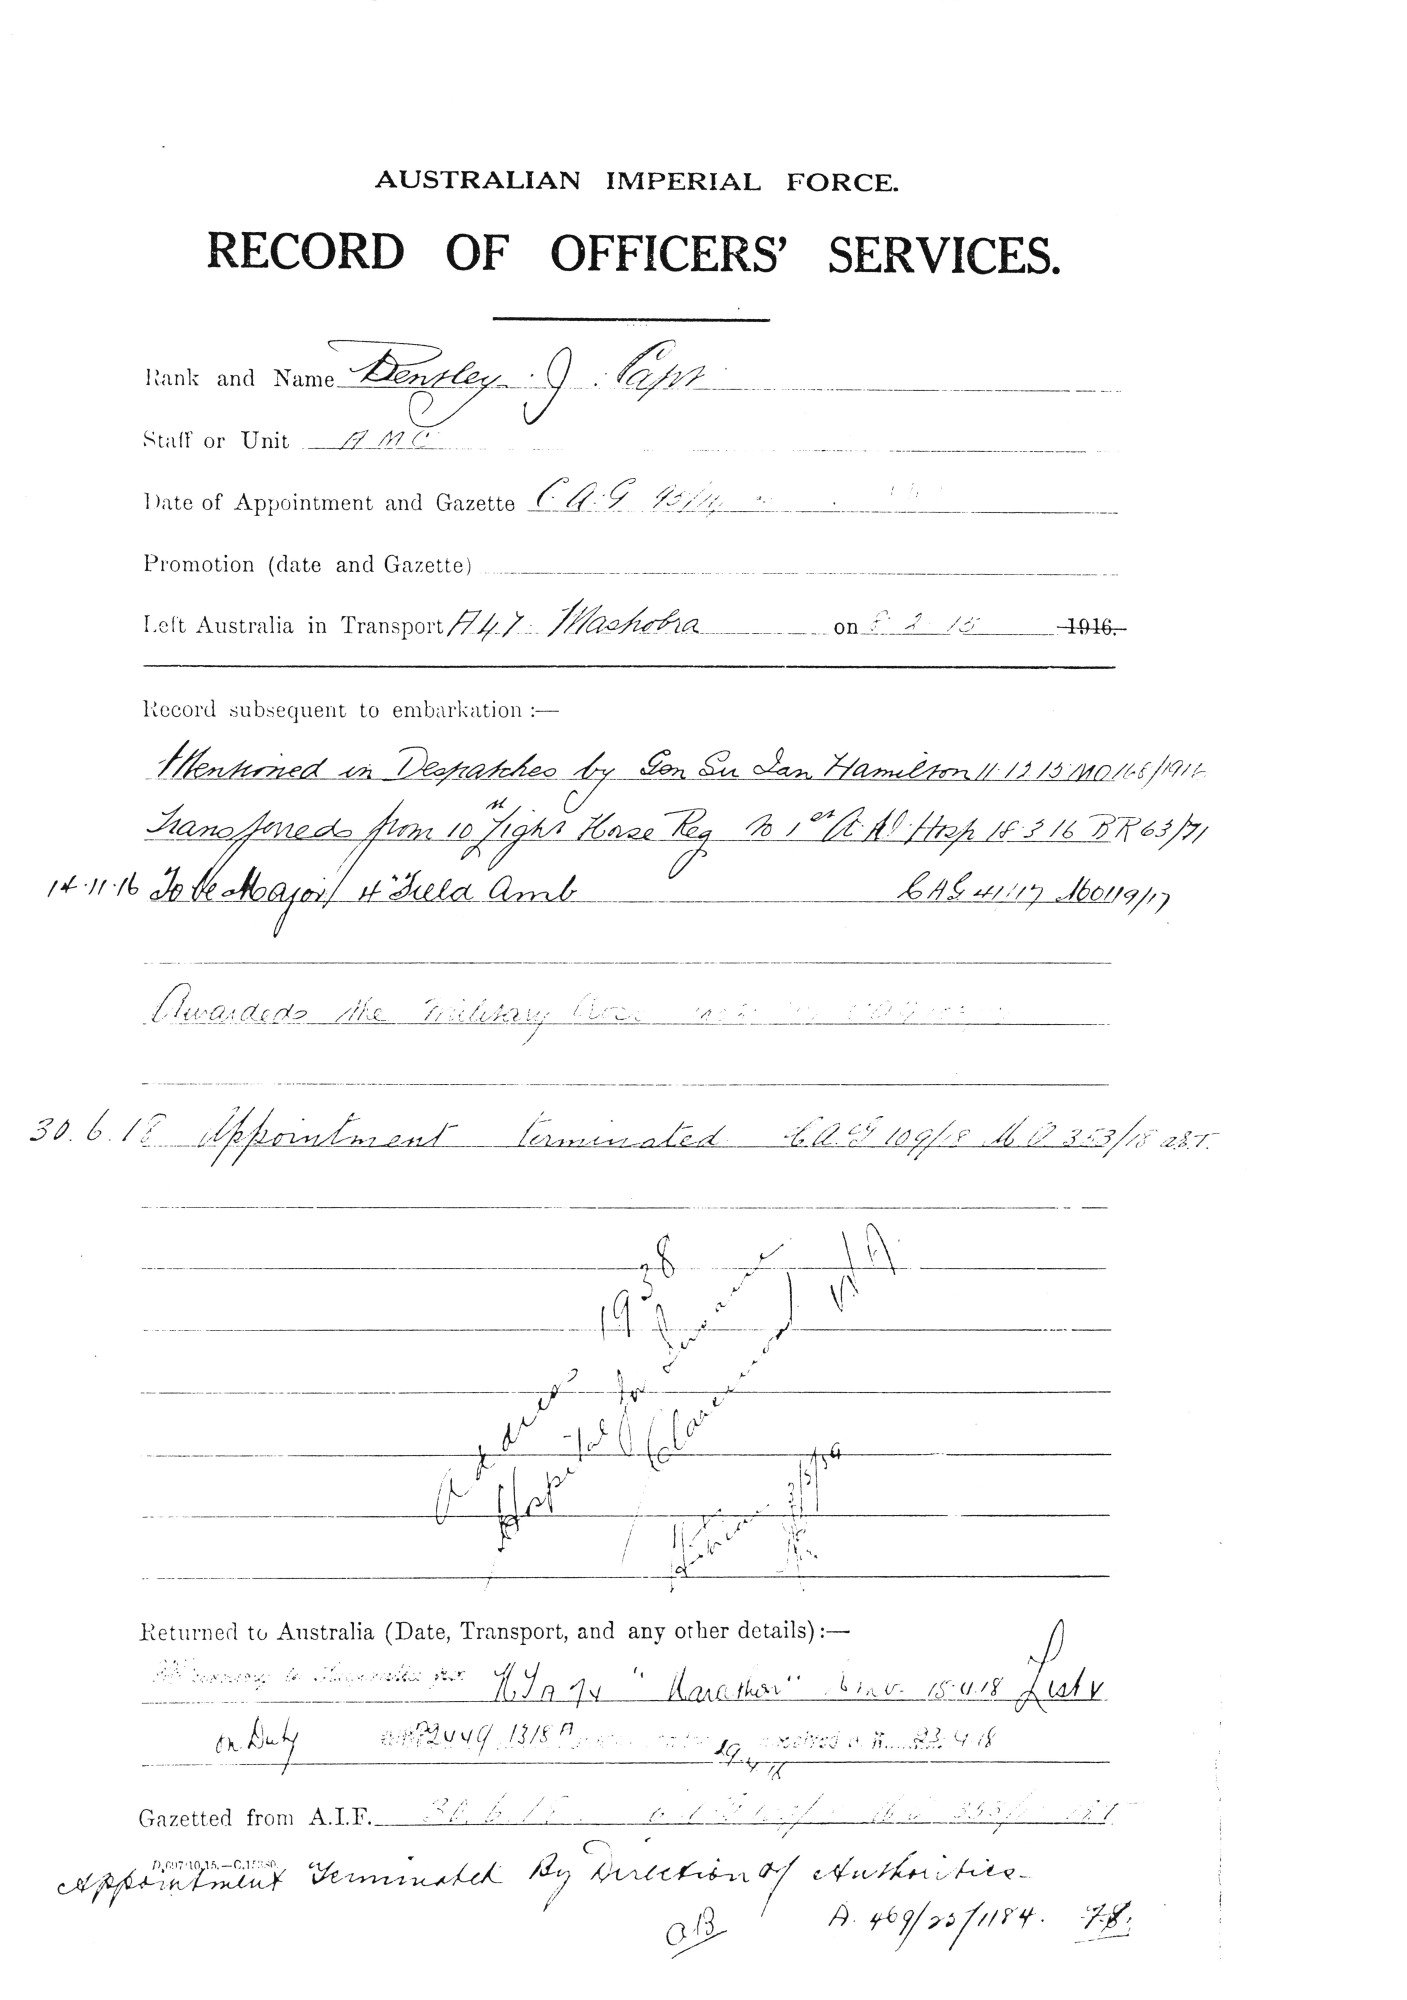 AUSTRALIAN IMPERIAL FORCE.
RECORD OF OFFICERS' SERVICES.
Rank and Name Bensley J. Capt
Staff or Unit A M C
Date of Appointment and Gazette C. A. G 95/14
Promotion (date and Gazette)
Left Australia in Transport A47 Mashobra on 8 2 15 1916.
Record subsequent to embarkation :—
Mentioned in Despatches by Gen Sir Ian Hamilton 11.12.15 MO 168/1916
Transferred from 10 Light Horse Reg to 1st A. Hosp 18.3.16 BR 63/71
14.11.16 To be Major 4 Field Amb CAG 41/17 MO 119/17
Awarded the Military Cross
30.6.18 Appointment terminated C.A.G 109/18 M.O 353/18
Address 1938
Hospital for Insane
Claremont W A
3/5/39
Returned to Australia (Date, Transport, and any other details):—
"Marathon" 15.4.18 List
on Duty 23.4.18
Gazetted from A.I.F. 30.6.18
D.697/10.15.—C.15380.
Appointment Terminated By Direction of Authorities.
A. 469/23/1184.